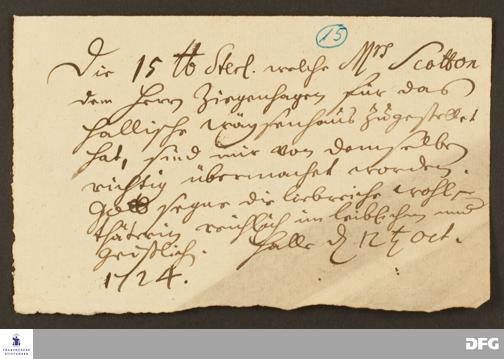 15
Die 15 tt Sterl. welche Mrs Scotton
dem Herrn Ziegenhagen für das
Hallische Wäysenhaus zugestellet
hat, sind mir von demselben
richtig übermachet worden.
Gott segne die liebreiche Wohl-
thäterin reichlich im leiblichen und
geistlich. Halle d. 12 t. Oct.
1724.
FRANCKESCHE
STIFTUNGEN
DFG